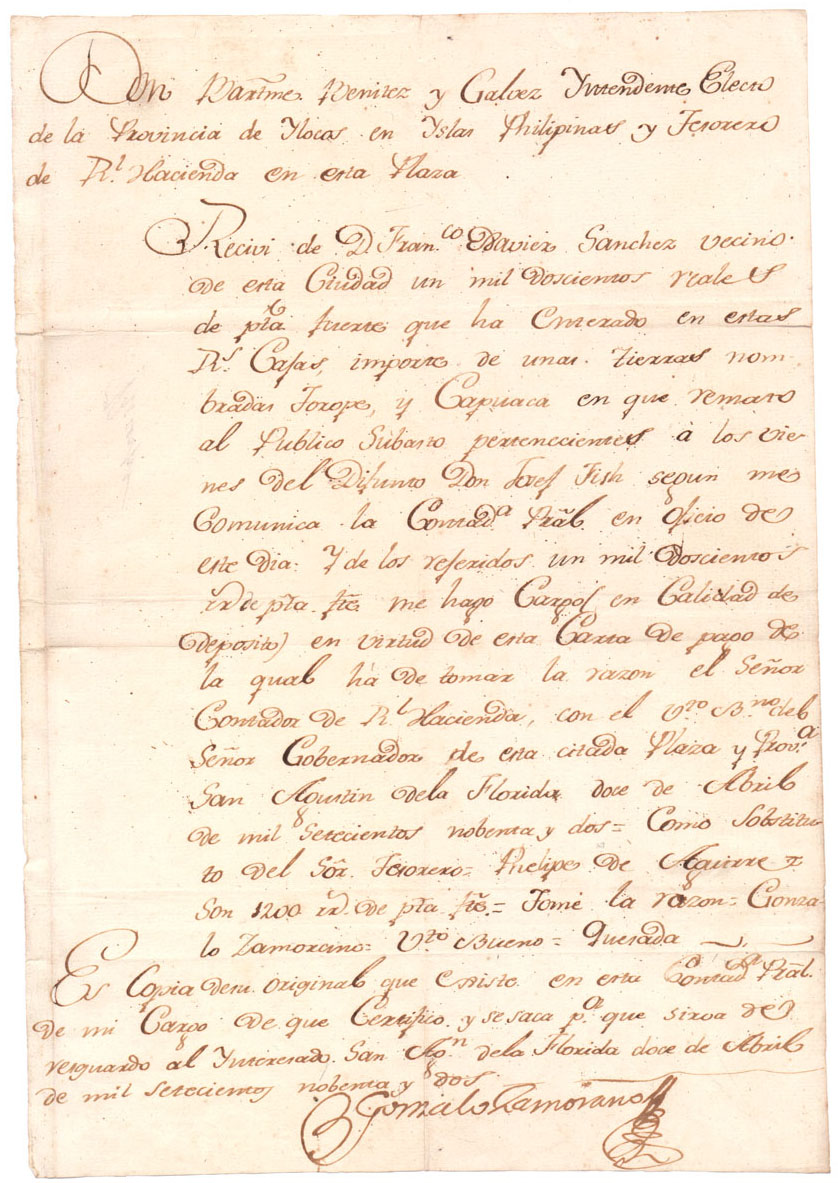 Don Bartme. Benitez y Galvez Yntendente Electo
de la Provincia de Ylocos en Yslas Philipinas y Tesorero
de Rl. Hacienda en esta Plaza
Recivi de D. Franco. Xavier Sanchez vecino
de esta Ciudad un mil doscientos reales
de pta. fuerte que ha Enterado en estas
Rs. Casas, importe de unas tierras nom-
bradas Torope, y Capuaca en que remato
al Publico Subasto pertenecientes à los vie-
nes del Difunto Don Josef Fish segun me
Comunica la Contada. Pral. en oficio de
este dia: Y de los referidos un mil doscientos
rs. de pta. fte. me hago Cargo (en Calidad de
deposito) en virtud de esta Carta de pago de
la qual há de tomar la razon el Señor
Contador de Rl. Hacienda, con el Vto. Bno. del
Señor Gobernador de esta citada Plaza y Prova.
San Agustin dela Florida doce de Abril
de mil Setecientos nobenta y dos = Como Sobstitu-
to del Sor. Tesorero = Phelipe de Aguirre =
Son 1200 rs. de pta. fte. = Tomé la razon = Gonza-
lo Zamorano = Vto. Bueno = Quesada
Es Copia desu original que existe en esta Contada. Pral.
de mi Cargo de que Certifico y se saca pa. que sirva de
resguardo al Ynteresado. San Agn. dela Florida doce de Abril
de mil setecientos nobenta y dos.
Gonzalo Zamorano